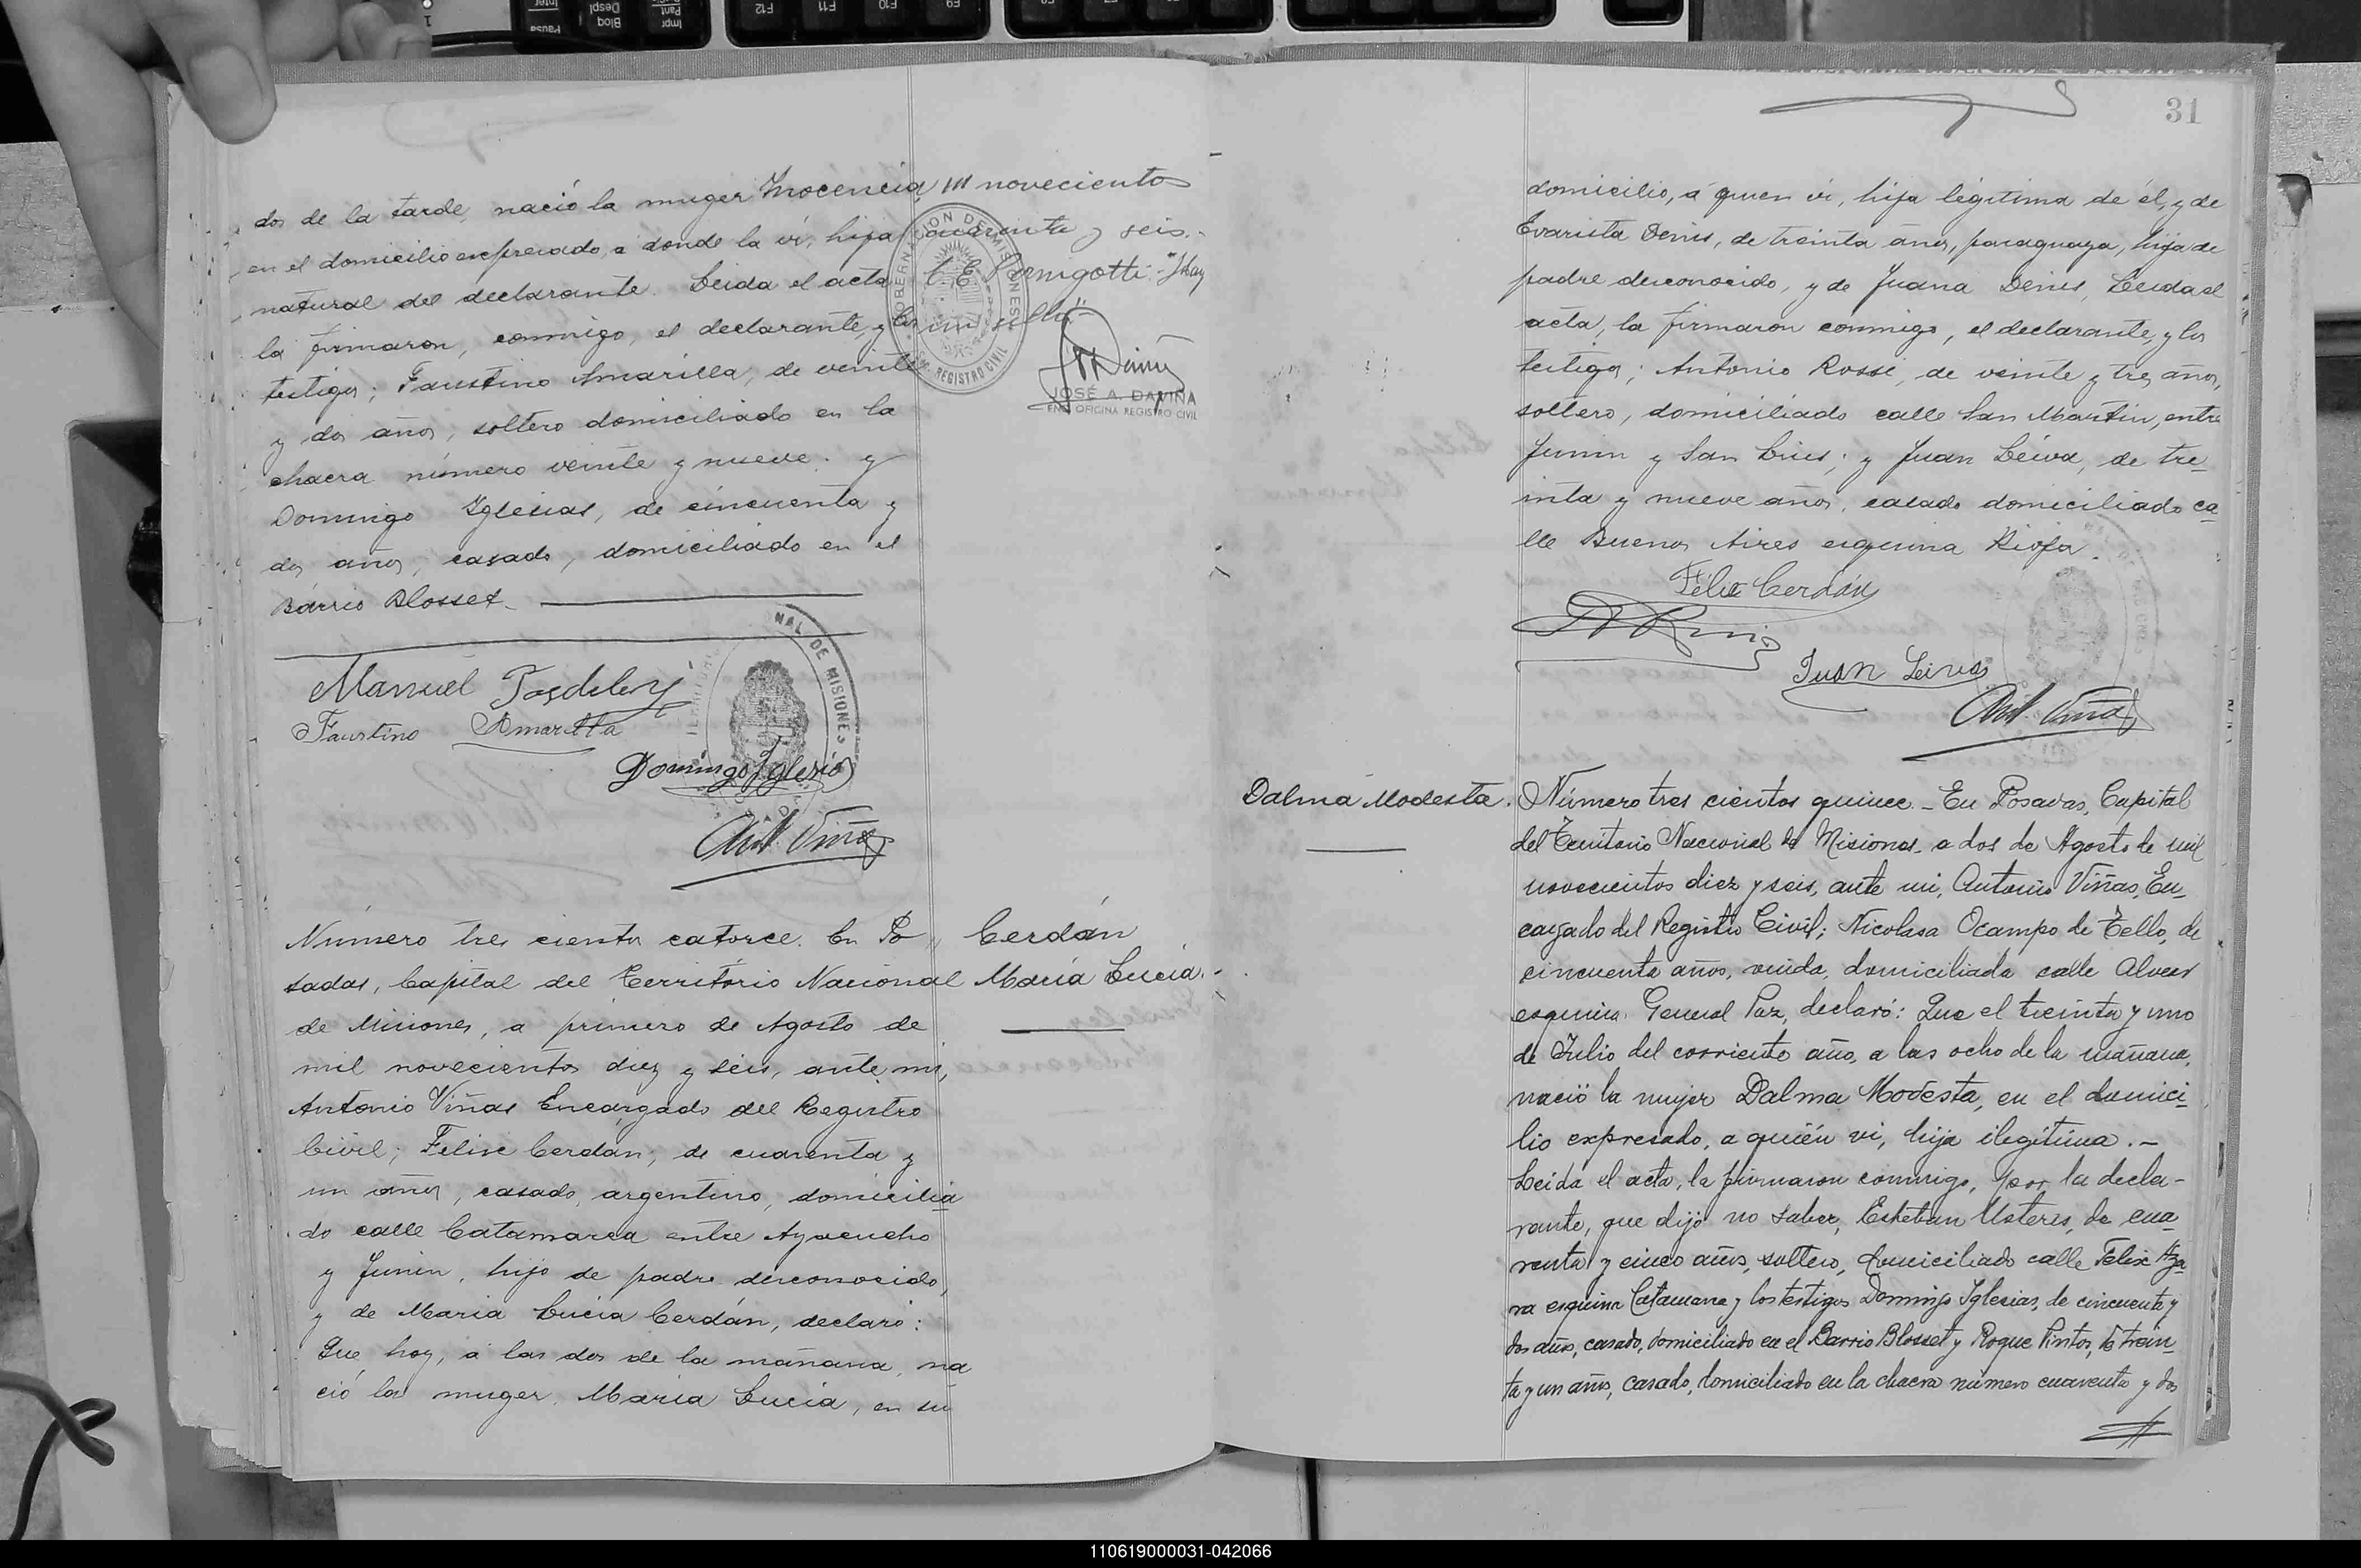 31
dos de la tarde, nació la muger Inocencia,
en el domicilio expresado, a donde la vi, hija
natural del declarante. Leida el acta
la firmaron, conmigo, el declarante, y los
testigos; Faustino Amarilla, de veinte
y dos años, soltero domiciliado en la
chacra número veinte y nueve. y
Domingo Iglesias, de cincuenta y
dos años, casado, domiciliado en el
Barrio Blosset.
novecientos
cuarenta y seis.
JOSÉ A. DAVIÑA
ENC. OFICINA REGISTRO CIVIL
GOBERNACION DE MISIONES
REGISTRO CIVIL
Manuel
Faustino Amarilla
Domingo Iglesias
Ant. Viñas
NAL DE MISIONES
Número tres cientos catorce. En Po
sadas, Capital del Território Nacional
de Misiones, a primero de Agosto de
mil novecientos diez y seis, ante mi,
Antonio Viñas Encargado del Registro
Civil; Felix Cerdán, de cuarenta y
un años, casado, argentino, domicilia
do calle Catamarca entre Ayacucho
y Junin, hijo de padre desconocido,
y de Maria Lucia Cerdán, declaró:
Que hoy, a las dos de la mañana, na
ció la muger Maria Lucia, en su
Cerdán
Maria Lucia.
domicilio, a quien vi, hija legitima de él, y de
Evarista Denis, de treinta años, paraguaya, hija de
padre desconocido, y de Juana Denis, Leida el
acta, la firmaron conmigo, el declarante, y los
testigos; Antonio Rossi, de veinte y tres años,
soltero, domiciliado calle San Martin, entre
Junin y San Luis; y Juan Leiva, de tre
inta y nueve años, casado domiciliado ca
lle Buenos Aires esquina Rioja.
Félix Cerdán
Juan Leiva
Ant. Viñas
Dalma Modesta.
Número tres cientos quince. - En Posadas, Capital
del Territorio Nacional de Misiones, a dos de Agosto de mil
novecientos diez y seis, ante mi, Antonio Viñas, En-
cargado del Registro Civil; Nicolasa Ocampo de Tello, de
cincuenta años, viuda, domiciliada calle Alvear
esquina General Paz, declaró: Que el treinta y uno
de Julio del corriente año, a las ocho de la mañana,
nació la mujer Dalma Modesta, en el domici-
lio expresado, a quién vi, hija ilegítima. -
Leida el acta, la firmaron conmigo, por la decla-
rante, que dijo no saber, Esteban Usteres, de cua
renta y cinco años, soltero, domiciliado calle Felix Aza
ra esquina Catamarca y los testigos Domingo Iglesias, de cincuenta y
dos años, casado, domiciliado en el Barrio Blosset y Roque Pintos, de trein-
ta y un años, casado, domiciliado en la chacra número cuarenta y dos
110619000031-042066